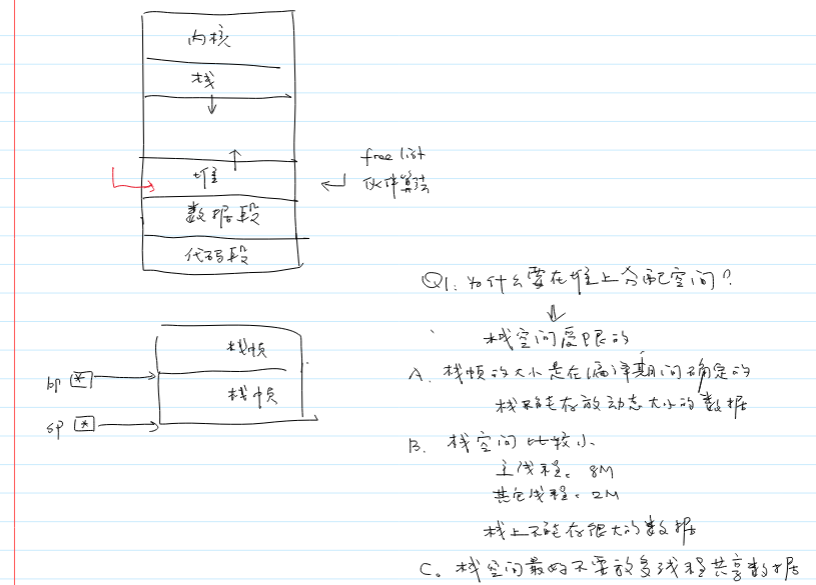 内核
栈
堆
free list
伙伴算法
数据段
代码段
Q1: 为什么要在堆上分配空间?
栈空间受限的
栈帧
bp
栈帧
sp
A. 栈帧的大小是在编译期间确定的
栈不能存放动态大小的数据
B. 栈空间比较小
主线程: 8M
其它线程: 2M
栈上不能存很大的数据
C. 栈空间最好不要放多线程共享数据